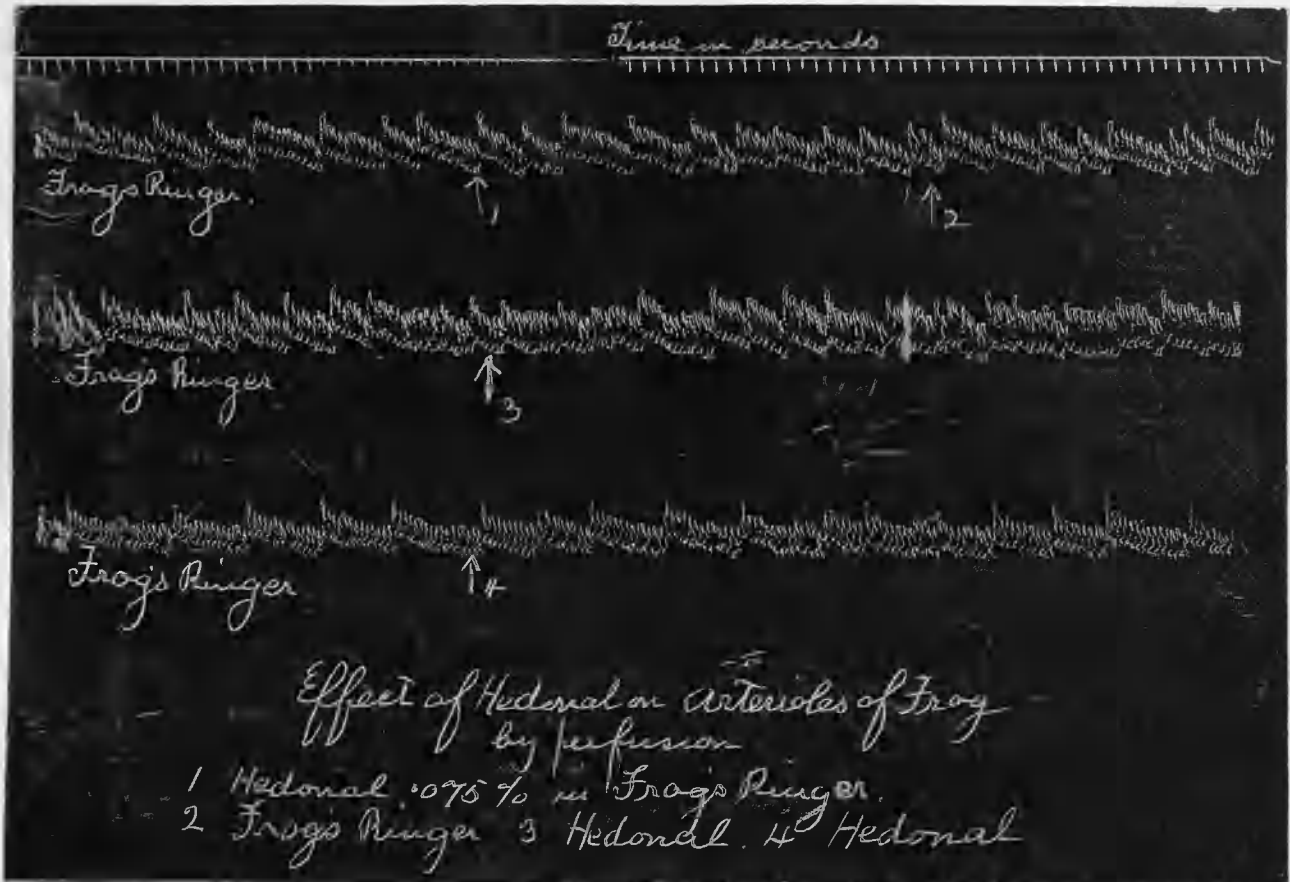 Time in seconds
Frogs Ringer.
1
2
Frogs Ringer
3
Frog's Ringer
4
Effect of Hedonal on Arterioles of Frog
by perfusion
1 Hedonal .075 % in Frog's Ringer.
2 Frogs Ringer 3 Hedonal. 4 Hedonal